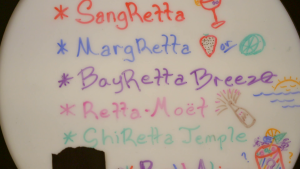 * SangRetta
* MargRetta or
* BayRetta Breeze
* Retta•Moët
* ShiRetta Temple